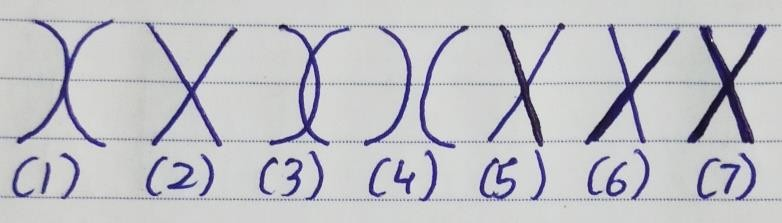 X X X )( X X X
(1) (2) (3) (4) (5) (6) (7)